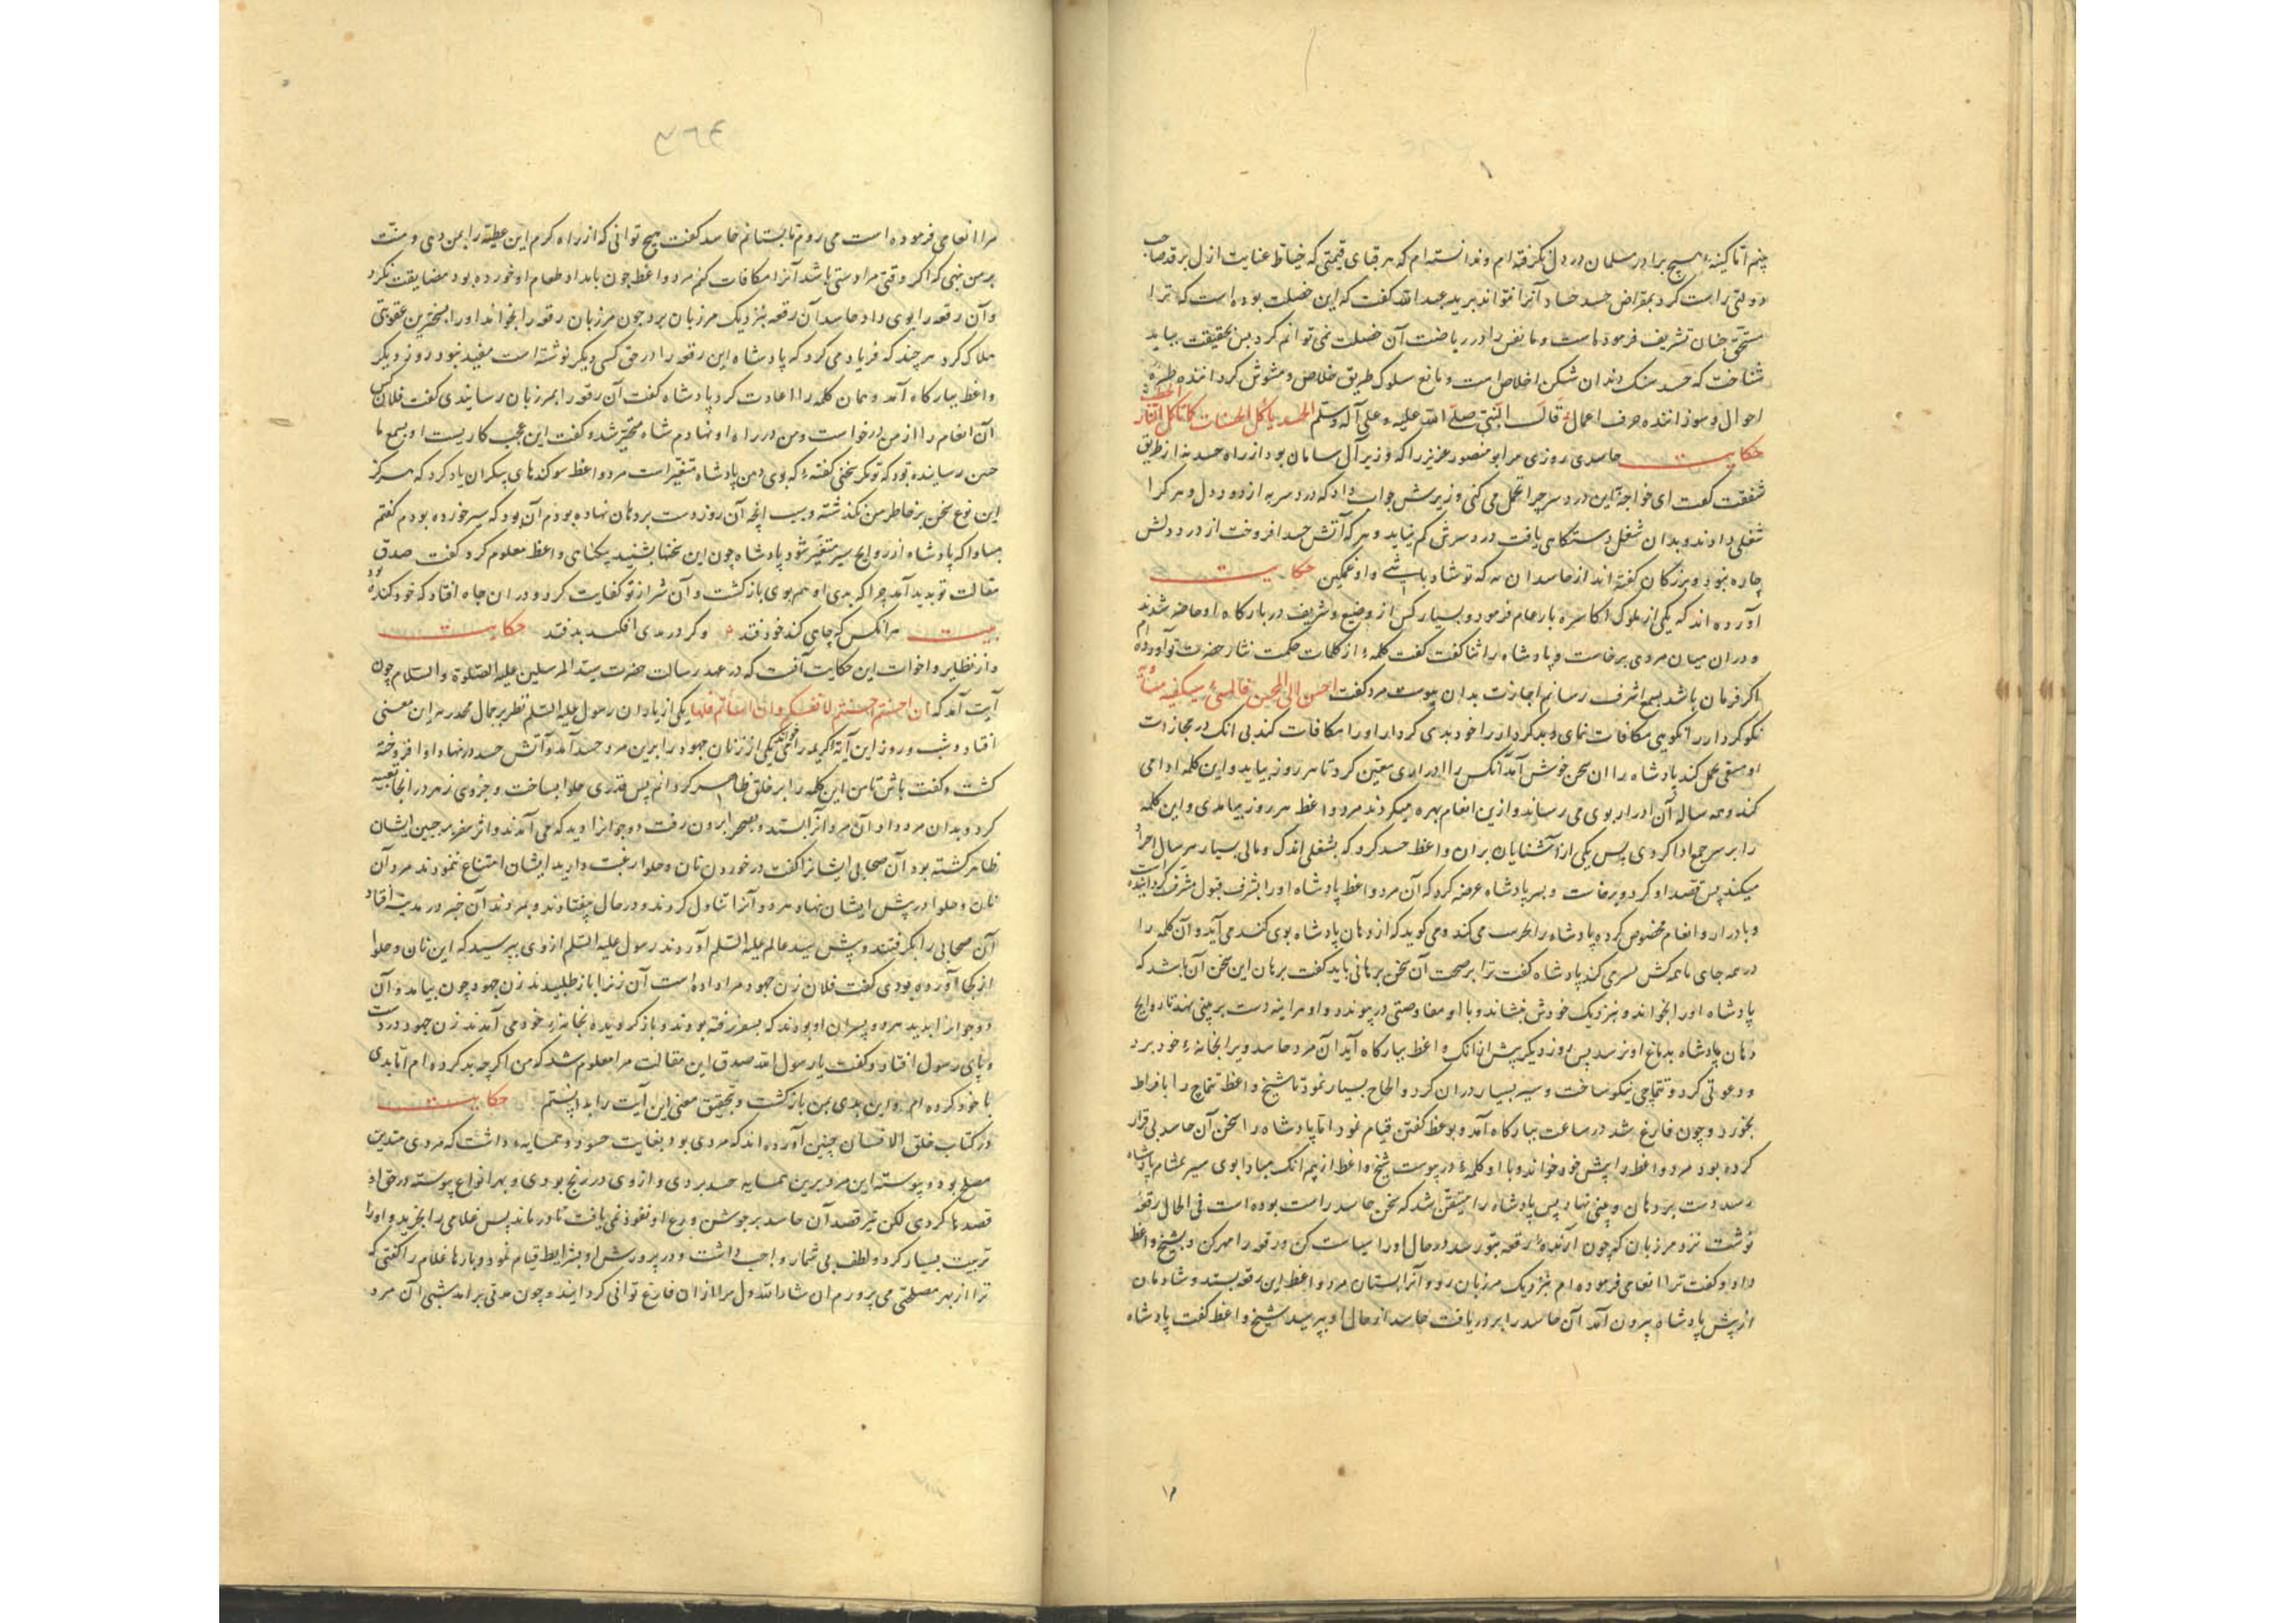 چنم اما کینهٔ هیچ برادر مسلمان در دل نگرفته‌ام و ندانسته‌ام که هر قبای قیمتی که خیاط عنایت ازل بر قد صاحب
دولتی راست کرد بمقراض حسد حساد آنرا نتواند برید عبدالله گفت که این خصلت بوده است که ترا
مستحق چنان تشریف فرموده‌است و ما نفس را در ریاضت آن خصلت نمی‌توانم کرد پس بحقیقت بباید
شناخت که حسد سنک دندان شکن اخلاص است و مانع سلوک طریق خلاص و مشوش گرداننده طرهٔ
احوال و سوزاننده حرف اعمال قال النبی صلی الله علیه و علی آله وسلم الحسد یاکل الحسنات کما تاکل النار الحطب
حکایت حاسدی روزی مر ابو منصور عزیز را که وزیر آل سامان بود از راه حسد نه از طریق
شفقت گفت ای خواجه این درد سر چرا تحمل می کنی وزیرش جواب داد که درد سر به از درد دل و هر کرا
شغلی دادند و بدان شغل دستگاهی یافت درد سرش کم نیاید و هر که آتش حسد افروخت از درد دلش
چاره نبود و بزرگان گفته‌اند از حاسدان نه که تو شاد باشی و او غمگین حکایت
آورده‌اند که یکی از ملوک اکاسره بار عام فرمود و بسیار کس از وضیع و شریف در بارگاه او حاضر شدند
و دران میان مردی برخاست و پادشاه را ثنا گفت گفت کلمهٔ از کلمات حکمت نثار حضرت تو آورده‌ام
اگر فرمان باشد بسمع اشرف رسانم اجازت بدان پیوست مرد گفت احسن الی المحسن فالمسئ سیکفیه مساویه
نکو کردار را نکویی مکافات نمای و بد کردار را خود بدی کردار او را مکافات کند بی انک در مجازات
او سعی عمل کند پادشاه را ان سخن خوش آمد آنکس را ادراری معین کرد تا هر روز بیاید و این کلمه ادا می
کند و همه ساله آن ادرار بوی می رساند و ازین انعام بهره میگردند مرد واعظ هر روز بیامدی و این کلمه
را بر سر جمع ادا کردی پس یکی از آشنایان بران واعظ حسد کرد که بشغلی اندک و مالی بسیار هر سال احراز
میکند پس قصد او کرد و برخاست و بسر پادشاه عرضه کرد که آن مرد واعظ پادشاه او را بشرف قبول مشرف گردانیده است
و بادرار و انعام مخصوص کرده پادشاه را می کند و می گوید که از دهان پادشاه بوی گند می آید و آن کلمه را
در همه جای با همه کس تسری کند پادشاه گفت ترا بر صحت آن سخن برهانی باید گفت برهان این سخن آن باشد که
پادشاه او را بخواند و بنزدیک خودش بنشاند و با او مفاوضتی در پیوندد و او هراینه دست بر بینی نهد تا روایح
دهان پادشاه بدماغ او نرسد پس روز دیگر پیش ازانک واعظ ببارگاه آید آن مرد حاسد ویرا بخانهٔ خود برد
و دعوتی کرد و تتماجی نیکو ساخت و سیر بسیار دران کرد و الحاح بسیار نمود تا شیخ واعظ تتماج را بافراط
بخورد و چون فارغ شد در ساعت ببارگاه آمد و بوعظ گفتن قیام نمود اما پادشاه را سخن آن حاسد بی قرار
کرده بود مرد واعظ را پیش خود خواند و با او کلمهٔ در پیوست شیخ واعظ از بیم انک مبادا بوی سیر بمشام پادشاه
رسد دست بر دهان و بینی نهاد پس پادشاه را متیقن شد که سخن حاسد راست بوده است فی الحال رقعهٔ
نوشت نزد مرزبان که چون آرندهٔ رقعه بتو رسد در حال او را سیاست کن و رقعه را مهر کن و بشیخ واعظ
داد و گفت ترا انعامی فرموده‌ام بنزدیک مرزبان رو و آنرا بستان مرد واعظ این رقعه بستد و شادمان
از پیش پادشاه بیرون آمد آن حاسد را بر در یافت حاسد از حال او بپرسید شیخ واعظ گفت پادشاه
۴۶۴
مرا انعامی فرموده است می روم تا بستانم حاسد گفت هیچ توانی که از راه کرم این عطیه را بمن دهی و منت
بر من نهی که اگر وقتی مرا دستی باشد آنرا مکافات کنم مرد واعظ چون بامداد طعام او خورده بود مضایقت نکرد
و آن رقعه را بوی داد حاسد آن رقعه بنزدیک مرزبان برد چون مرزبان رقعه را بخواند او را بسخترین عقوبتی
هلاک کرد هر چند که فریاد می کرد که پادشاه این رقعه را در حق کسی دیگر نوشته است مفید نبود روز دیگر
واعظ ببارگاه آمد و همان کلمه را اعادت کرد پادشاه گفت آن رقعه را بمرزبان رسانیدی گفت فلان کس
آن انعام را از من درخواست و من در راه او نهادم شاه متحیر شد و گفت این عجب کاریست او بسمع ما
چنین رسانیده بود که تو مگر سخنی گفتهٔ که بوی دهن پادشاه متغیر است مرد واعظ سوگندهای بیکران یاد کرد که هرگز
این نوع سخن بر خاطر من نگذشته و سبب انچه آن روز دست بر دهان نهاده بودم آن بود که سیر خورده بودم گفتم
مبادا که پادشاه از روایح سیر متغیر شود پادشاه چون این سخنها بشنید بیگناهی واعظ معلوم کرد گفت صدق
مقالت تو پدید آمد چرا که بدی او هم بوی بازگشت و آن شر از تو کفایت کرد و دران چاه افتاد که خود کنده بود
بیت هرانکس که چاهی کند خود فتد وگر در بدی افکند بد فتد حکایت
و از نظایر و اخوات این حکایت آنست که در عهد رسالت حضرت سید المرسلین علیه الصلوة والسلام چون
آیت آمد که ان احسنتم احسنتم لانفسکم وان اساتم فلها یکی از یاران رسول علیه السلم نظر بر جمال مخدره این معنی
افتاد و شب و روز این آیهٔ کریمه را خواندی یکی از زنان جهود را برین مرد حسد آمد و آتش حسد در نهاد او افروخته
گشت و گفت باش تا من این کلمه را بر خلق ظاهر گردانم پس قدری حلوا بساخت و جزوی زهر در انجا تعبیه
کرد و بدان مرد داد آن مرد آنرا بستد و بصحرا برون رفت دو جوانرا دید که می آمدند و اثر سفر بر جبین ایشان
ظاهر گشته بود آن صحابی ایشانرا گفت در خوردن نان و حلوا رغبت دارید ایشان امتناع ننمودند مرد آن
نان و حلوا در پیش ایشان نهاد هر دو آنرا تناول کردند و در حال بیفتادند و بمردند آن خبر در مدینه افتاد
آن صحابی را بگرفتند و پیش سید عالم علیه السلم آوردند رسول علیه السلم از وی بپرسید که این نان و حلوا
از کجا آورده بودی گفت فلان زن جهود مرا داده است آن زنرا باز طلبیدند زن جهود چون بیامد و آن
دو جوانرا بدید هر دو پسران او بودند که بسفر رفته بودند و باز گردیده بخانهٔ خود می آمدند زن جهود در دست
و پای رسول افتاد و گفت یا رسول الله صدق این مقالت مرا معلوم شد که من اگر چه بد کرده‌ام اما بدی
با خود کرده‌ام و این بدی بمن بازگشت و تحقیق معنی این آیت را بدانستم حکایت
در کتاب خلق الانسان چنین آورده‌اند که مردی بود بغایت حسود و همسایهٔ داشت که مردی متدین
مصلح بود و پیوسته این مرد برین همسایه حسد بردی و از وی در رنج بودی و بهر انواع پیوسته در حق او
قصدها کردی لکن تیر قصد آن حاسد بر جوشن ورع او نفوذ نمی یافت تا در ماند پس غلامی را بخرید و او را
تربیت بسیار کرد و لطف بی شمار واجب داشت و در پرورش او بشرایط قیام نمود و بارها غلام را گفتی که
ترا از بهر مصلحتی می پرورم ان شاء الله دل مرا از ان فارغ توانی گردانید و چون مدتی برامد شبی آن مرد